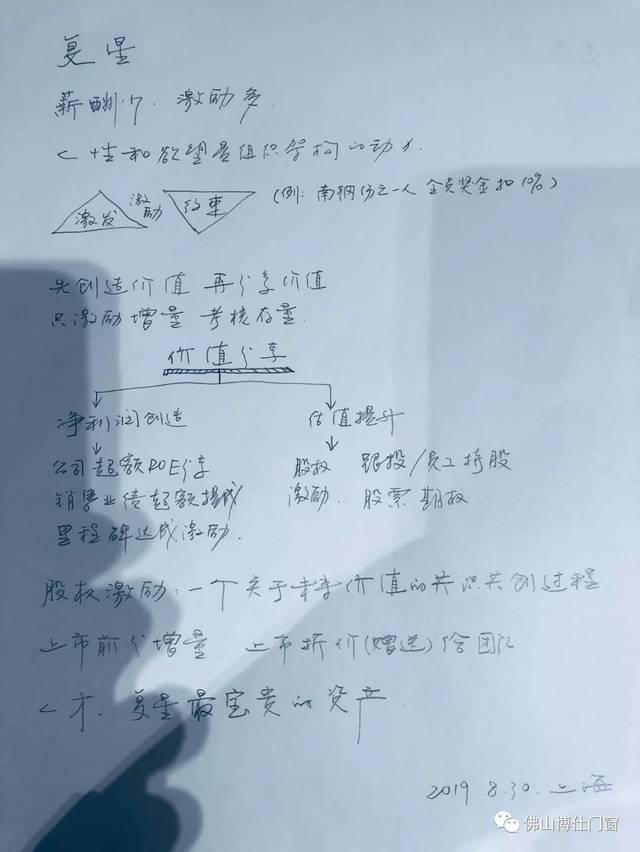 复星
薪酬少. 激励多.
人性和欲望是组织架构的动力.
激发 激励 约束 (例: 南钢伤亡一人 全员奖金扣10%)
先创造价值 再分享价值
只激励增量 考核存量
价值分享
净利润创造 估值提升
公司超额ROE分享 股权激励. 跟投/员工持股
销售业绩超额提成 股票期权
里程碑达成激励.
股权激励: 一个关于未来价值的共识共创过程
上市前分增量 上市折价(赠送)给团队
人才. 复星最宝贵的资产.
2019 8.30. 上海
佛山博仕门窗